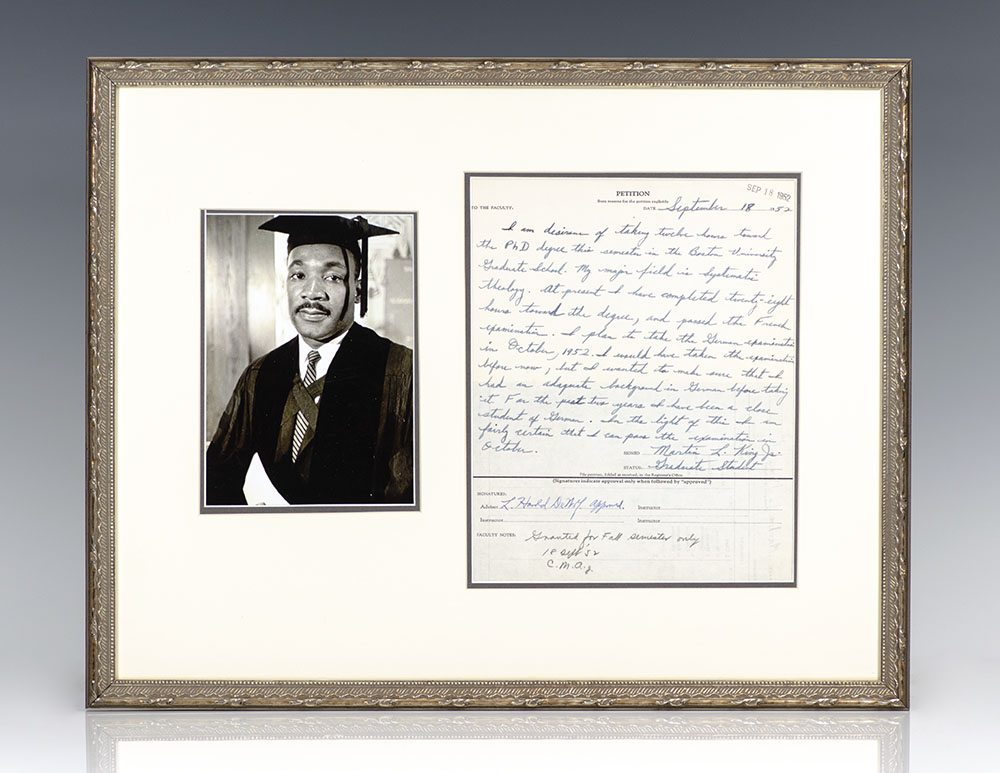 PETITION
SEP 18 1952
State reasons for the petition explicitly
TO THE FACULTY:
DATE September 18 1952
I am desirous of taking twelve hours toward
the PhD degree this semester in the Boston University
Graduate School. My major field is Systematic
theology. At present I have completed twenty-eight
hours toward the degree, and passed the French
examination. I plan to take the German examination
in October, 1952. I would have taken the examination
before now, but I wanted to make sure that I
had an adaquate background in German before taking
it. For the past two years I have been a close
student of German. In the light of this I am
fairly certain that I can pass the examination in
October.
SIGNED Martin L. King Jr.
STATUS: Graduate Student
(Signatures indicate approval only when followed by "approved")
SIGNATURES:
Adviser L. Harold DeWolf approved. Instructor
Instructor Instructor
FACULTY NOTES: Granted for Fall semester only
18 Sept '52
C.M.A.